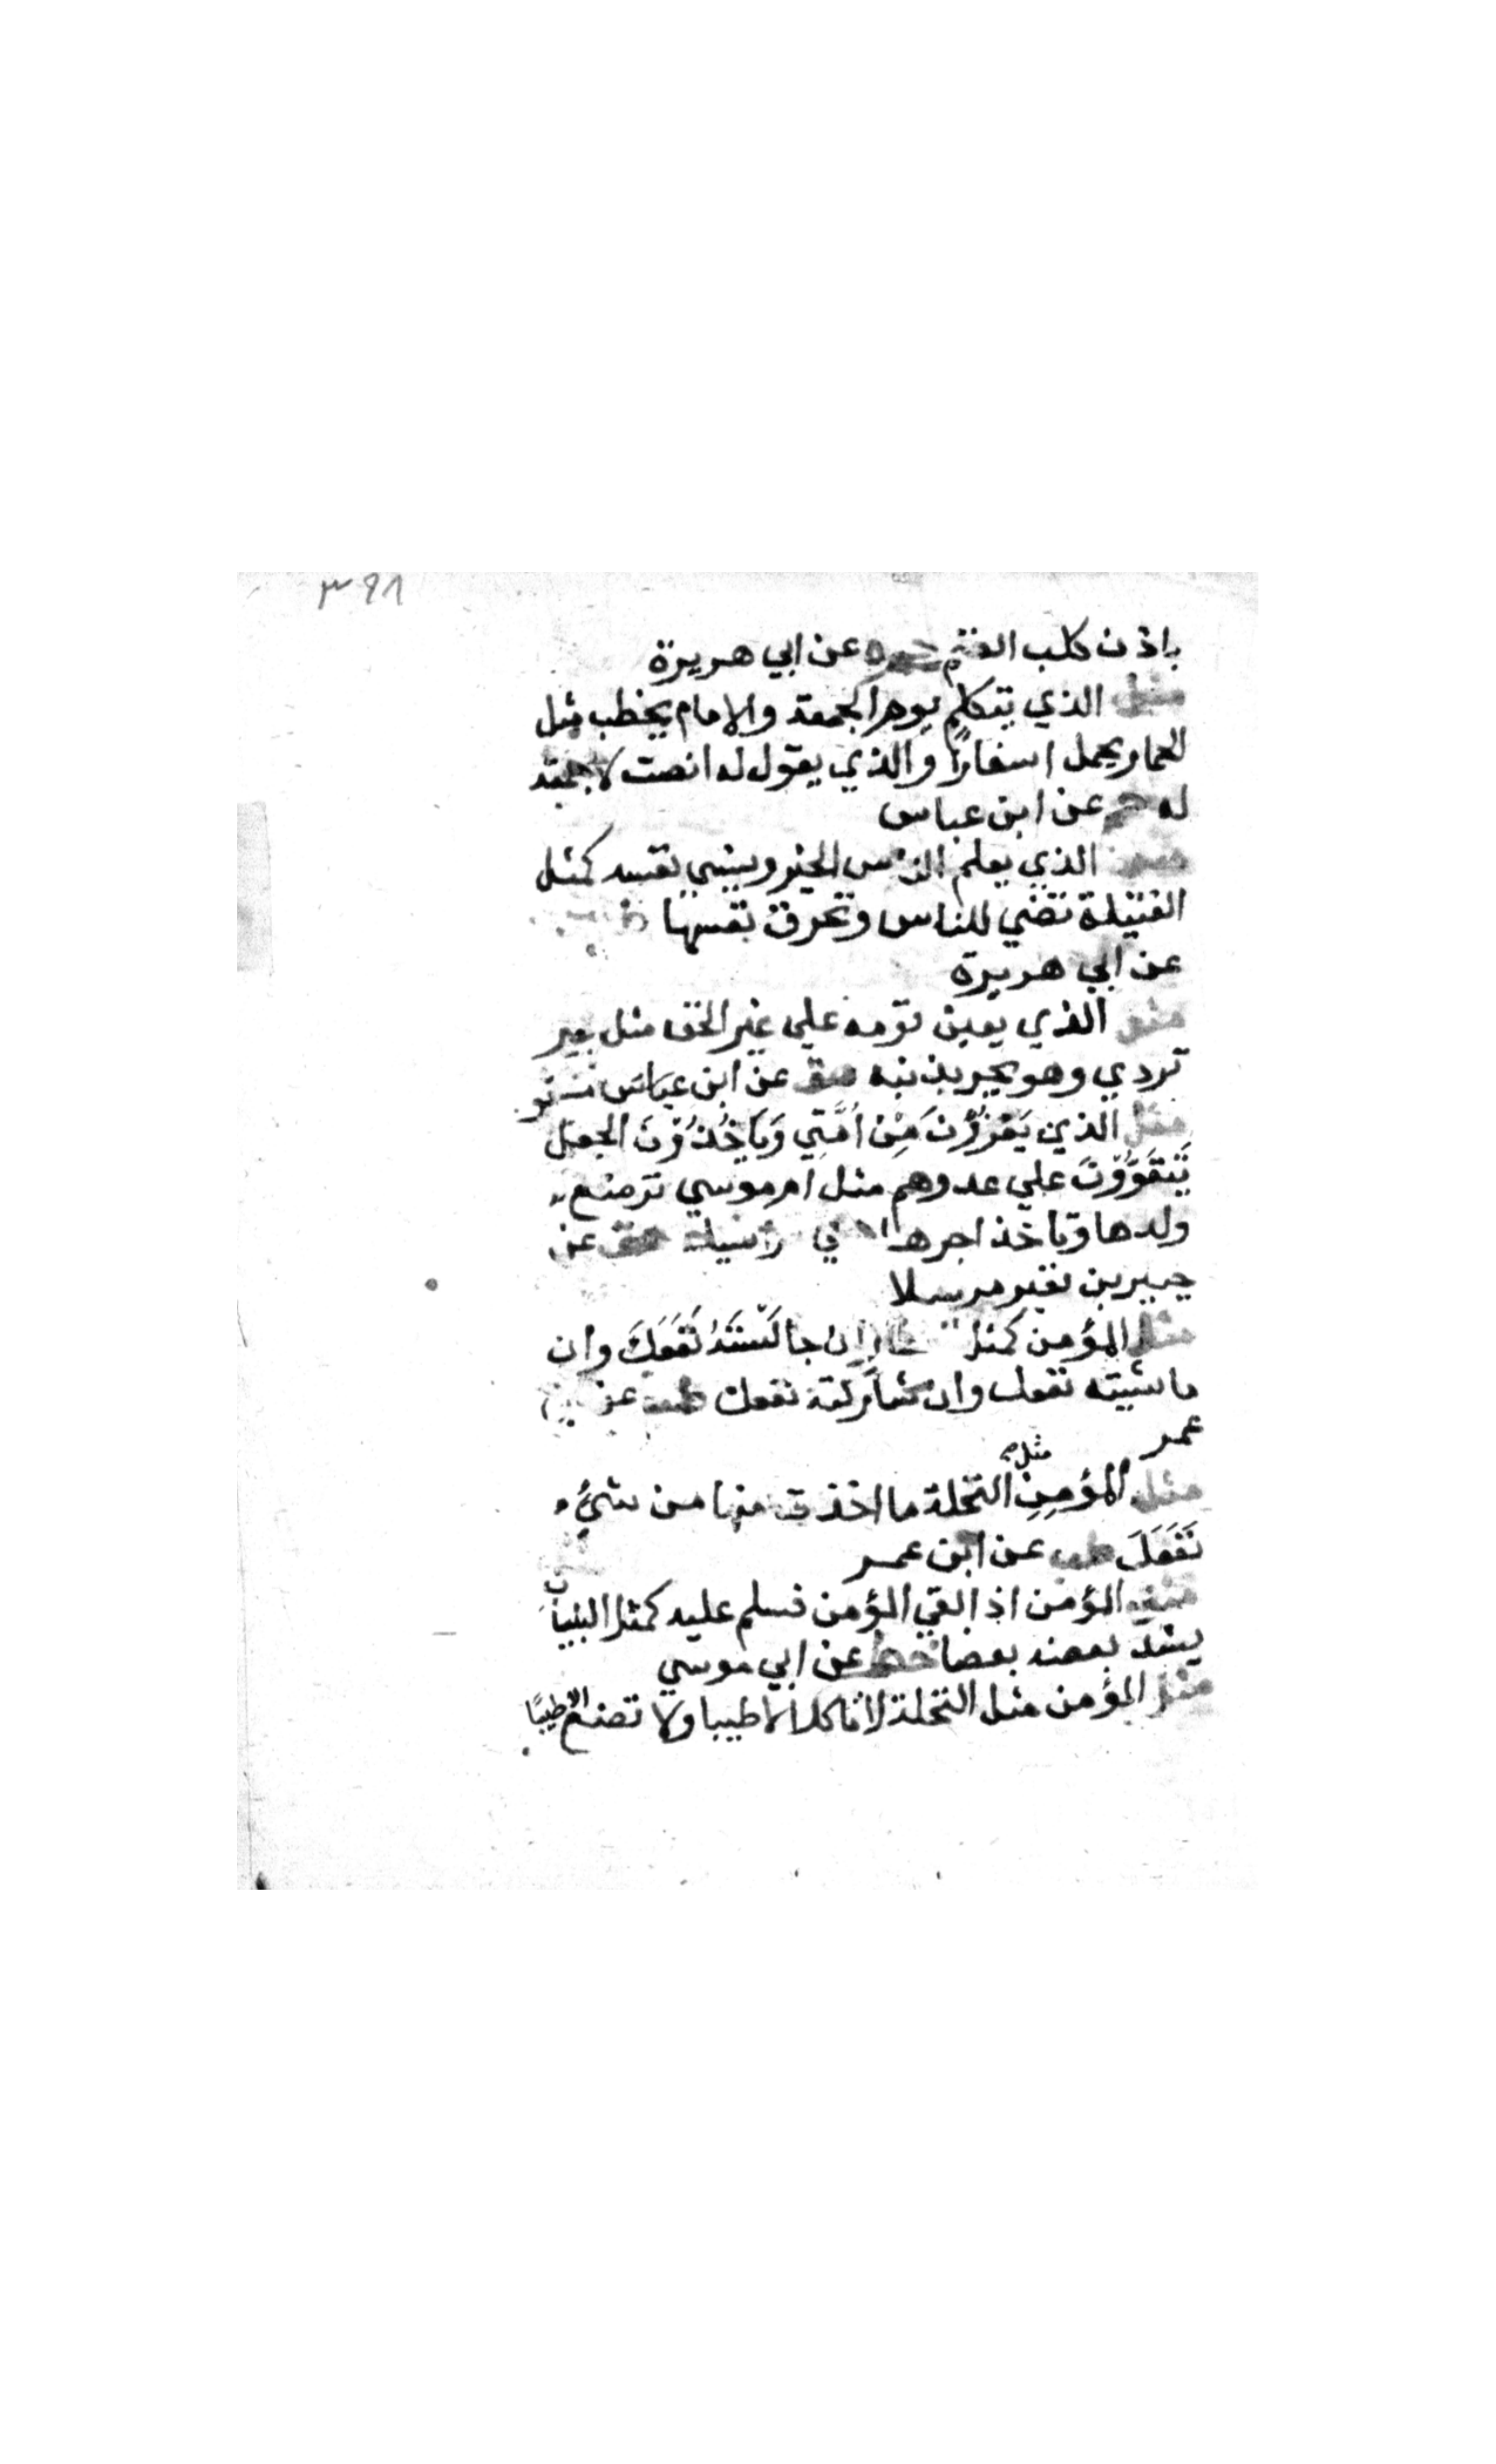 ٣٩٨
باذن كلب الغنم عن ابي هريرة
مثل الذي يتكلم يوم الجمعة والامام يخطب مثل
الحمار يحمل اسفارًا والذي يقول له انصت لا جمعة
له حم عن ابن عباس
مثل الذي يعلم الناس الخير وينسي نفسه كمثل
الفتيلة تضي للناس وتحرق نفسها
عن ابي هريرة
مثل الذي يعين قومه علي غير الحق مثل بعير
تردي وهو يجر بذنبه هق عن ابن عباس
مثل الذين يَغزُوْنَ مِنْ اُمَّتِي وَيَاخُذُوْنَ الجعل
يَتَقَوَّوْنَ علي عدوهم مثل ام موسي ترضع
ولدها وتاخذ اجرها في هق عن
جبير بن نفير مرسلا
مثل المؤمن كمثل ان جالَسْتَهُ نَفَعَكَ وان
ماشيته نفعك وان شاركته نفعك طب عن
عمر
مثل المؤمِنِ مثل النخلة ما اخذت منها من شيْء
نَفَعَكَ طب عن ابن عمر
مثل المؤمن اذا لقي المؤمن فسلم عليه كمثل البنيان
يشد بعضه بعضا خط عن ابي موسي
مثل المؤمن مثل النخلة لا تاكل الا طيبا ولا تضع الا طيبًا